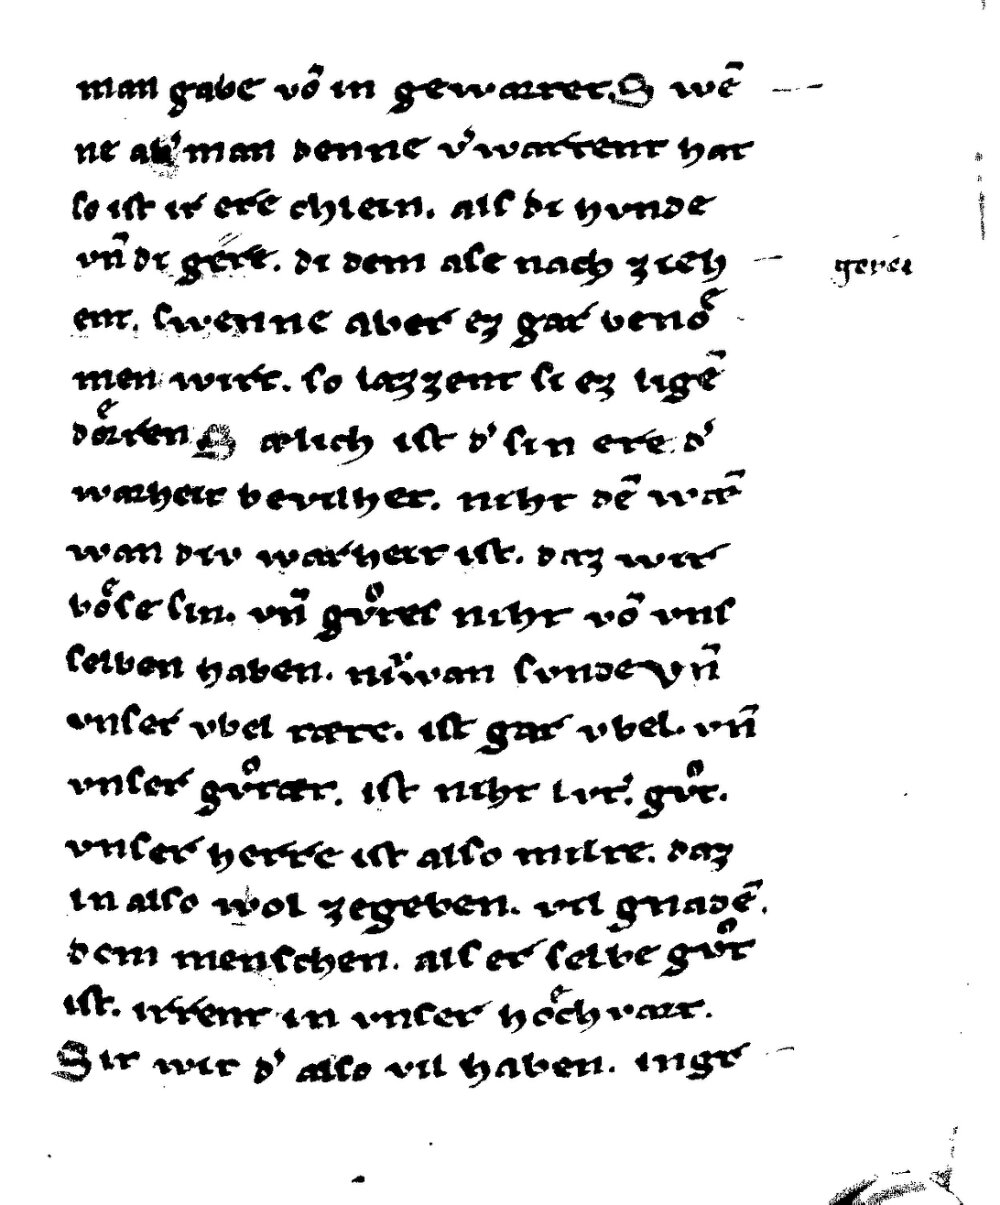 man gabe võ in gewartet. S wẽ
ne ab' man denne v'wartent hat
so ist ir ere chlein. als di hvnde
vñ di gere. di dem ase nach zieh
ent. swenne aber ez gar benoͤ
men wirt. so lazzent si ez ligẽ
doͤrren S ælich ist d' sin ere. d'
warheit bevilhet. niht dẽ wæ̃
wan div warheit ist. daz wir
boͤse sin. vñ gvͦtes niht võ vns
selben haben. niͮwan svnde vñ
vnser vbel tæte. ist gar vbel. vñ
vnser gvͦtæt. ist niht lvt'. gvͦt.
vnser herre ist also milte. daz
in also wol zegeben. vil gnadẽ.
dem menschen. als er selbe gvͦt
ist. irrent in vnser hoͤchvart.
Sit wir d' also vil haben. ingt
gevei